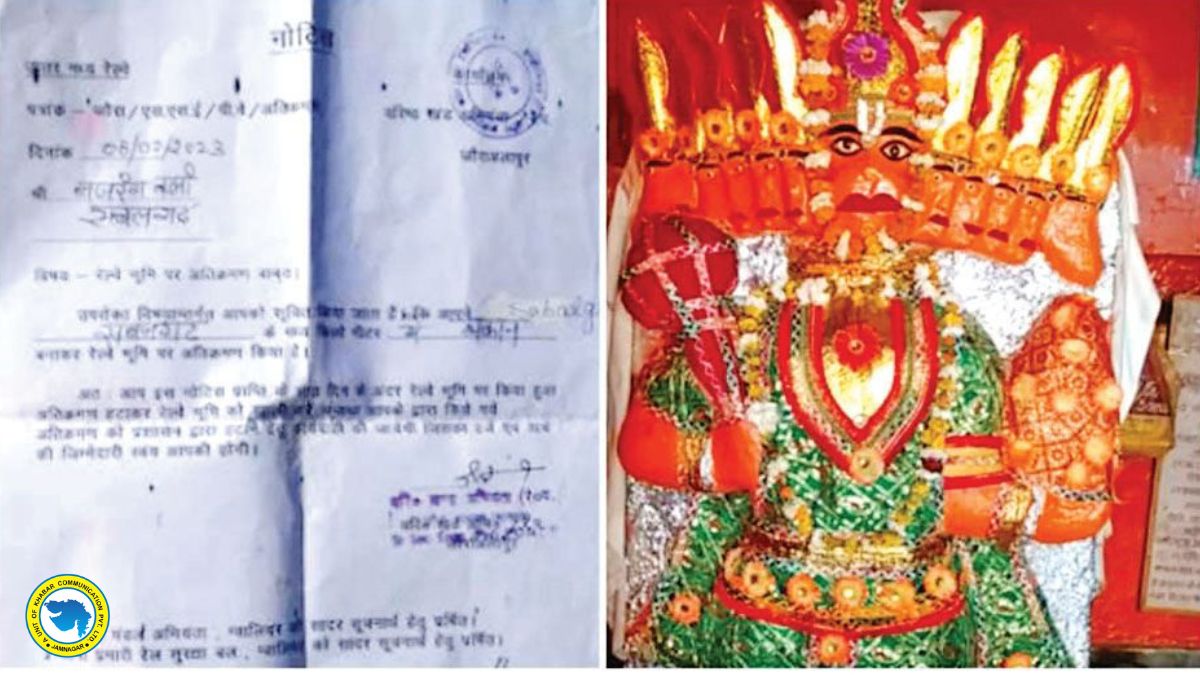 नोटिस
उत्तर मध्य रेल्वे
कार्यालय
पत्रांक - जौरा/एस.एस.ई/पी.वे/अतिक्रमण
वरिष्ठ खंड अभियंता
जौराअलापुर
दिनांक 08/02/2023
श्री बजरंग बली
सबलगढ
विषय :- रेल्वे भूमि पर अतिक्रमण बाबत।
उपरोक्त विषयान्तर्गत आपको सूचित किया जाता है कि आपने
सबलगढ के मध्य किलो मीटर में मकान
बनाकर रेल्वे भूमि पर अतिक्रमण किया है।
अतः आप इस नोटिस प्राप्ति के सात दिन के अंदर रेल्वे भूमि पर किया हुआ
अतिक्रमण हटाकर रेल्वे भूमि को खाली करें अन्यथा आपके द्वारा किये गये
अतिक्रमण को प्रशासन द्वारा हटाने हेतु कार्यवाही की जावेगी जिसका हर्जे एवं खर्चे
की जिम्मेदारी स्वयं आपकी होगी।
मंडल अभियंता, ग्वालियर को सादर सूचनार्थ हेतु प्रषित।
प्रभारी रेल सुरक्षा बल, ग्वालियर को सादर सूचनार्थ हेतु प्रर्षित।
A UNIT OF KHABAR COMMUNICATION PVT. LTD.
JAMNAGAR